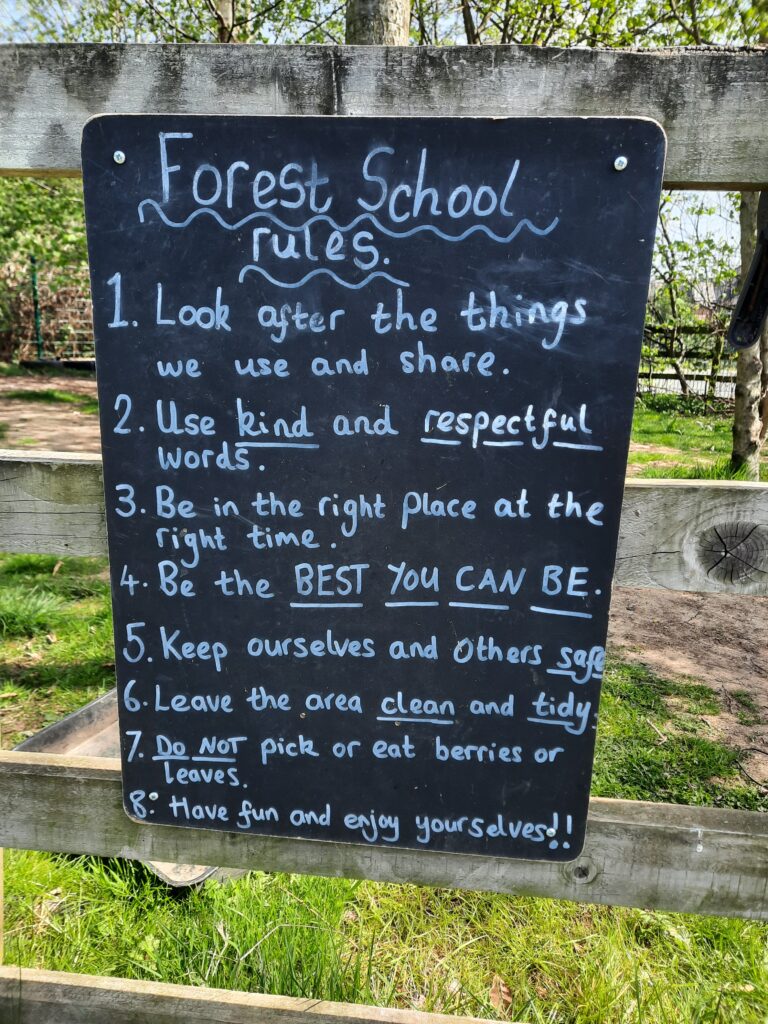 Forest School
rules.
1. Look after the things
we use and share.
2. Use kind and respectful
words.
3. Be in the right place at the
right time.
4. Be the BEST YOU CAN BE.
5. Keep ourselves and others safe
6. Leave the area clean and tidy.
7. DO NOT pick or eat berries or
leaves.
8. Have fun and enjoy yourselves!!